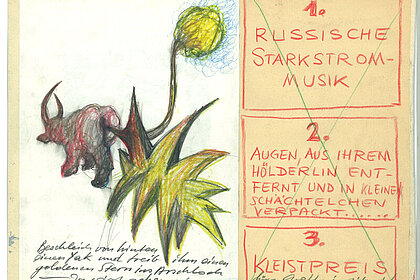 Beschleich von hinten
einen Yak und treib ihm einen
goldenen Stern ins Arschloch
1.
RUSSISCHE
STARKSTROM-
MUSIK
2.
AUGEN, AUS IHREM
HÖLDERLIN ENT-
FERNT UND IN KLEINE
SCHÄCHTELCHEN
VERPACKT......
3.
KLEISTPREIS